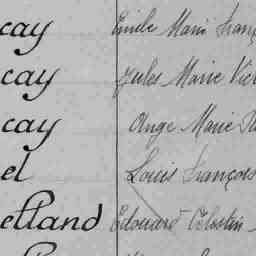 cay Emile Marie Franç
cay Jules Marie Vict
cay Ange Marie
el Louis François
etland Edouard Célestin